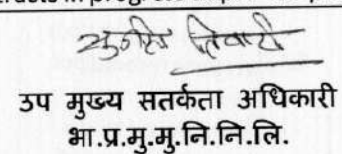 तिवारी
उप मुख्य सतर्कता अधिकारी
भा.प्र.मु.मु.नि.नि.लि.